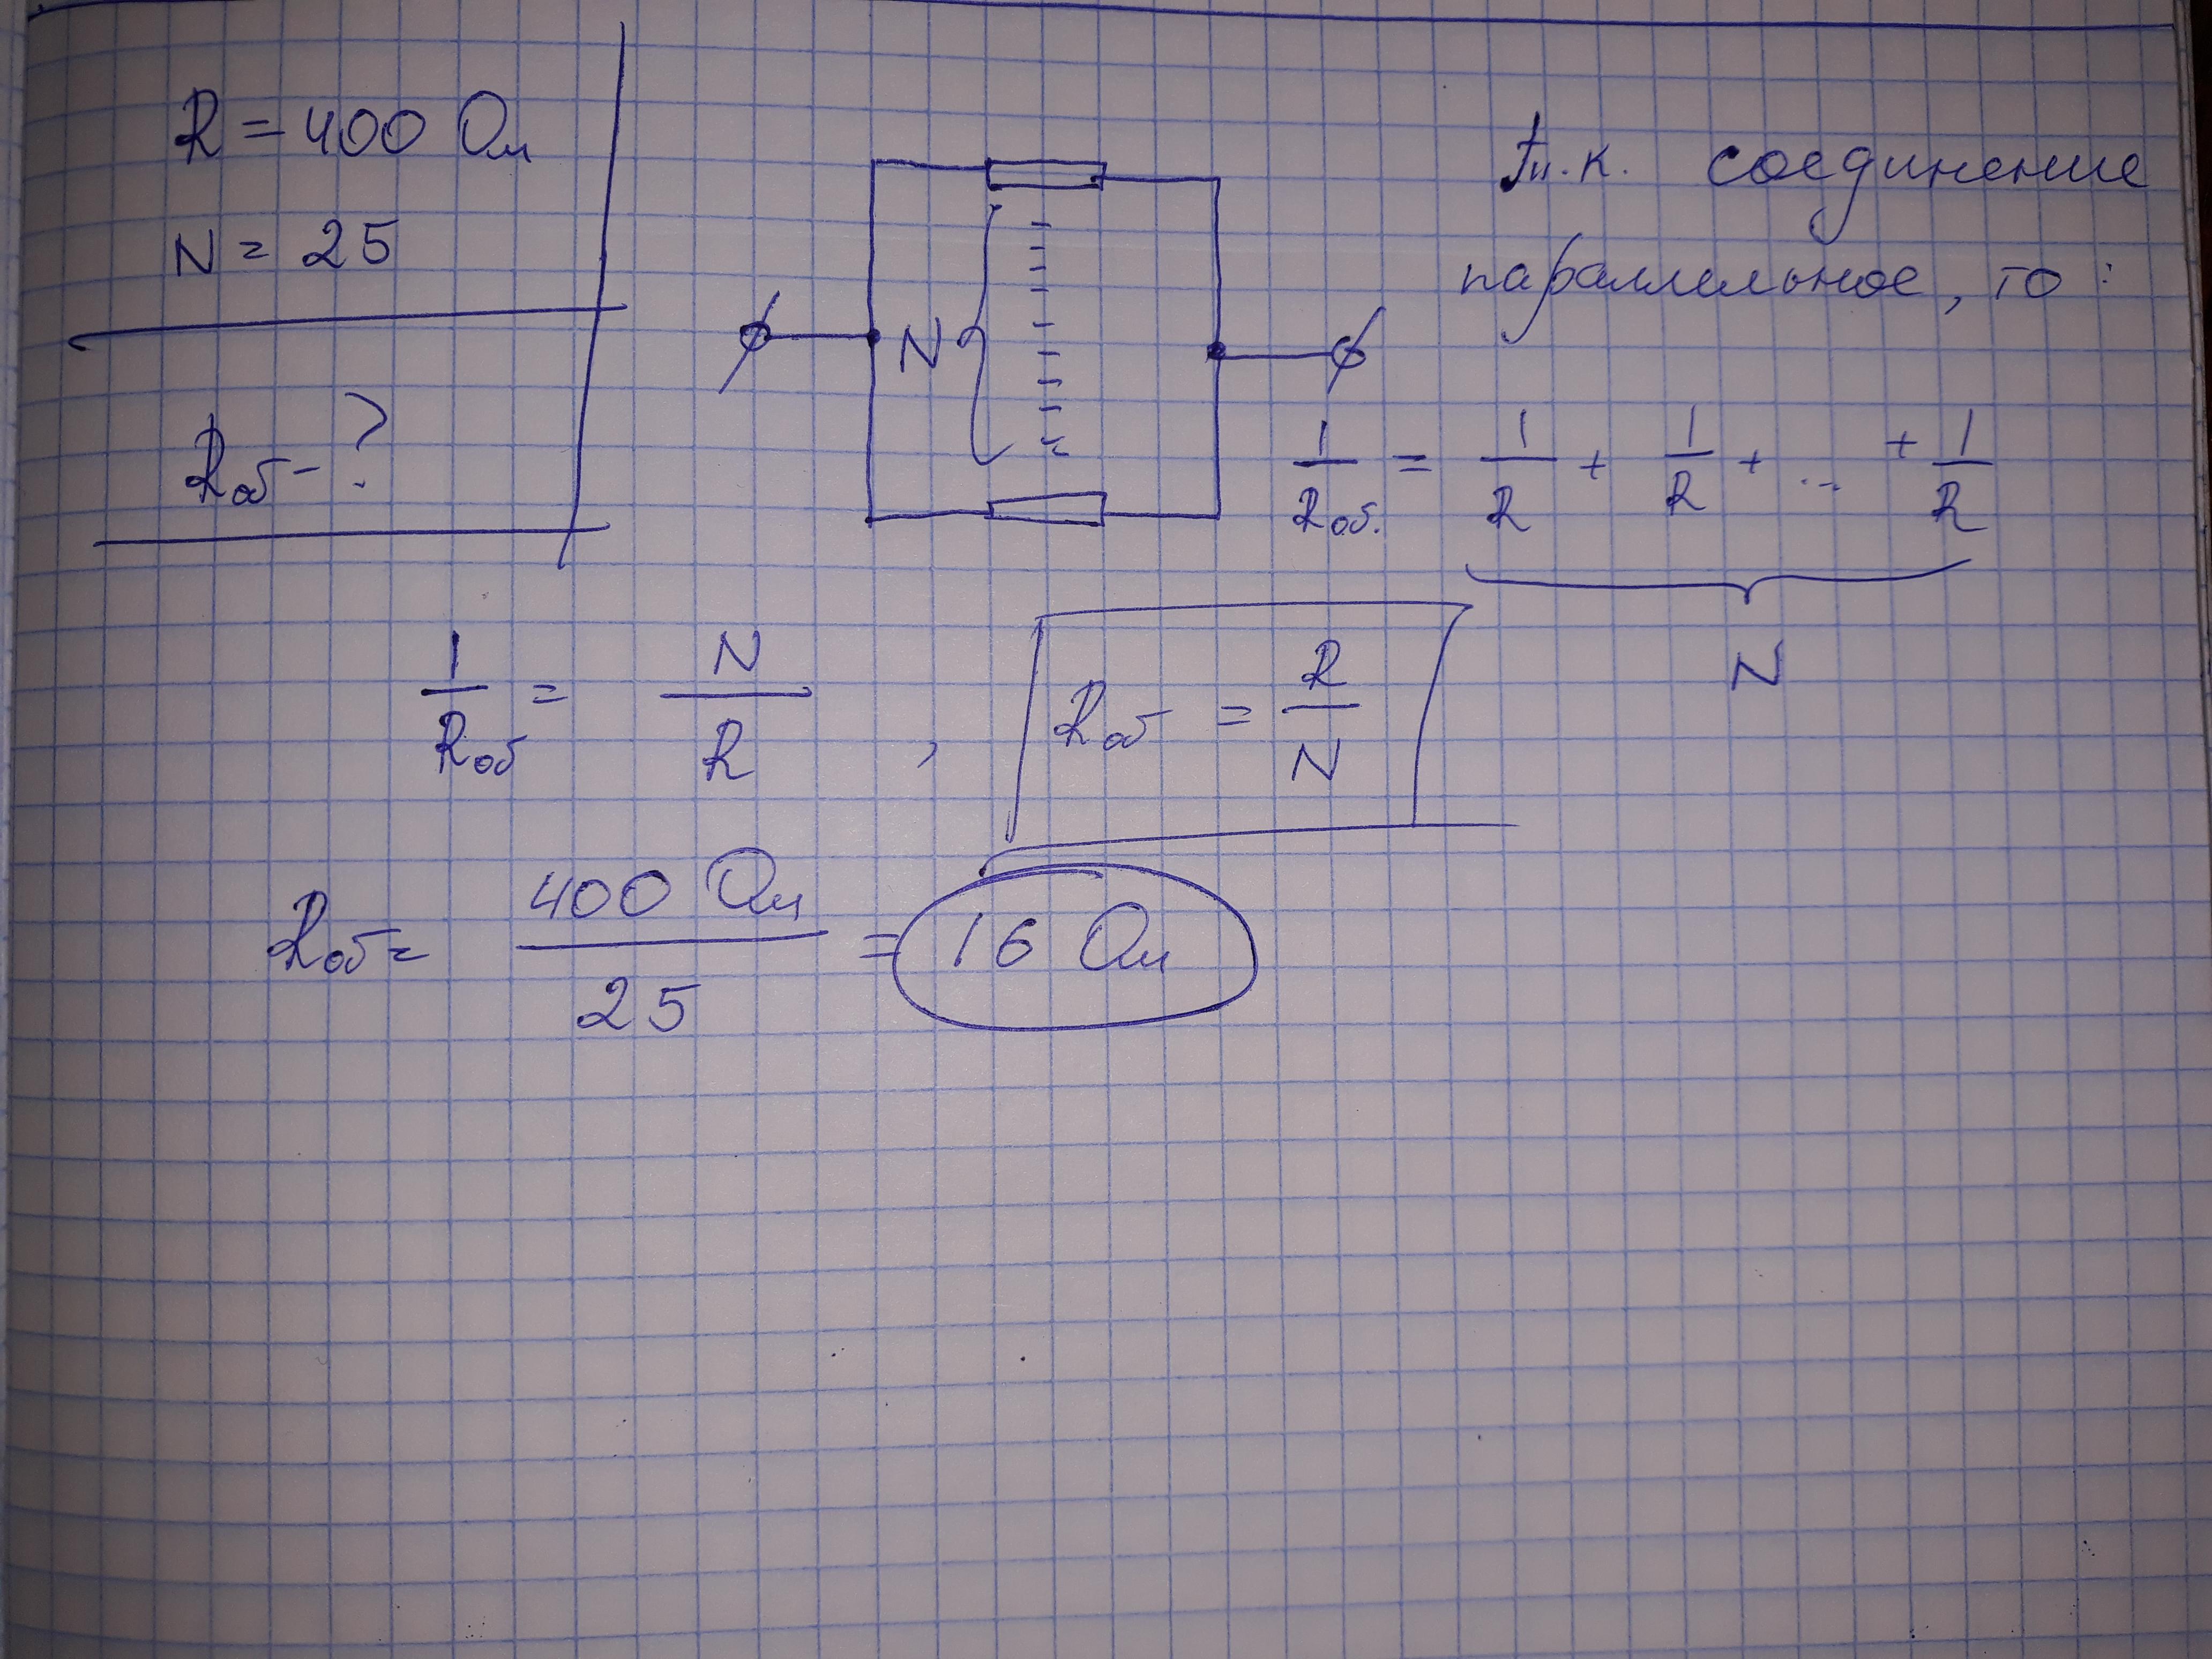 R = 400 Ом
N = 25
Rоб - ?
N
Т.к. соединение
параллельное, то:
1/Rоб. = 1/R + 1/R + ... + 1/R
N
1/Rоб = N/R , Rоб = R/N
Rоб = 400 Ом/25 = 16 Ом